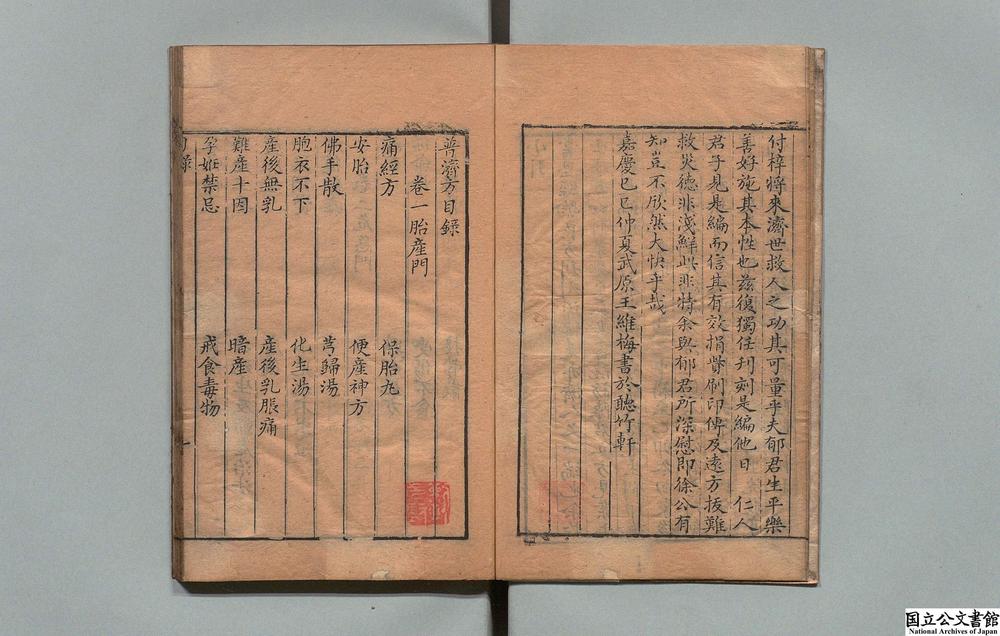 付梓將來濟世救人之功其可量乎夫郁君生平樂
善好施其本性也茲復獨任刋刻是編他日　仁人
君子見是編而信其有效捐貲刷印傳及遠方拔難
救災德非淺鮮此非特余與郁君所深慰即徐公有
知豈不欣然大快乎哉
嘉慶己巳仲夏武原王維梅書於聽竹軒
普濟方目錄
卷一胎產門
痛經方　保胎丸
安胎　便產神方
佛手散　芎歸湯
胞衣不下　化生湯
產後無乳　產後乳脹痛
難產十因　暗產
孕婦禁忌　戒食毒物
目錄　一
国立公文書館
National Archives of Japan